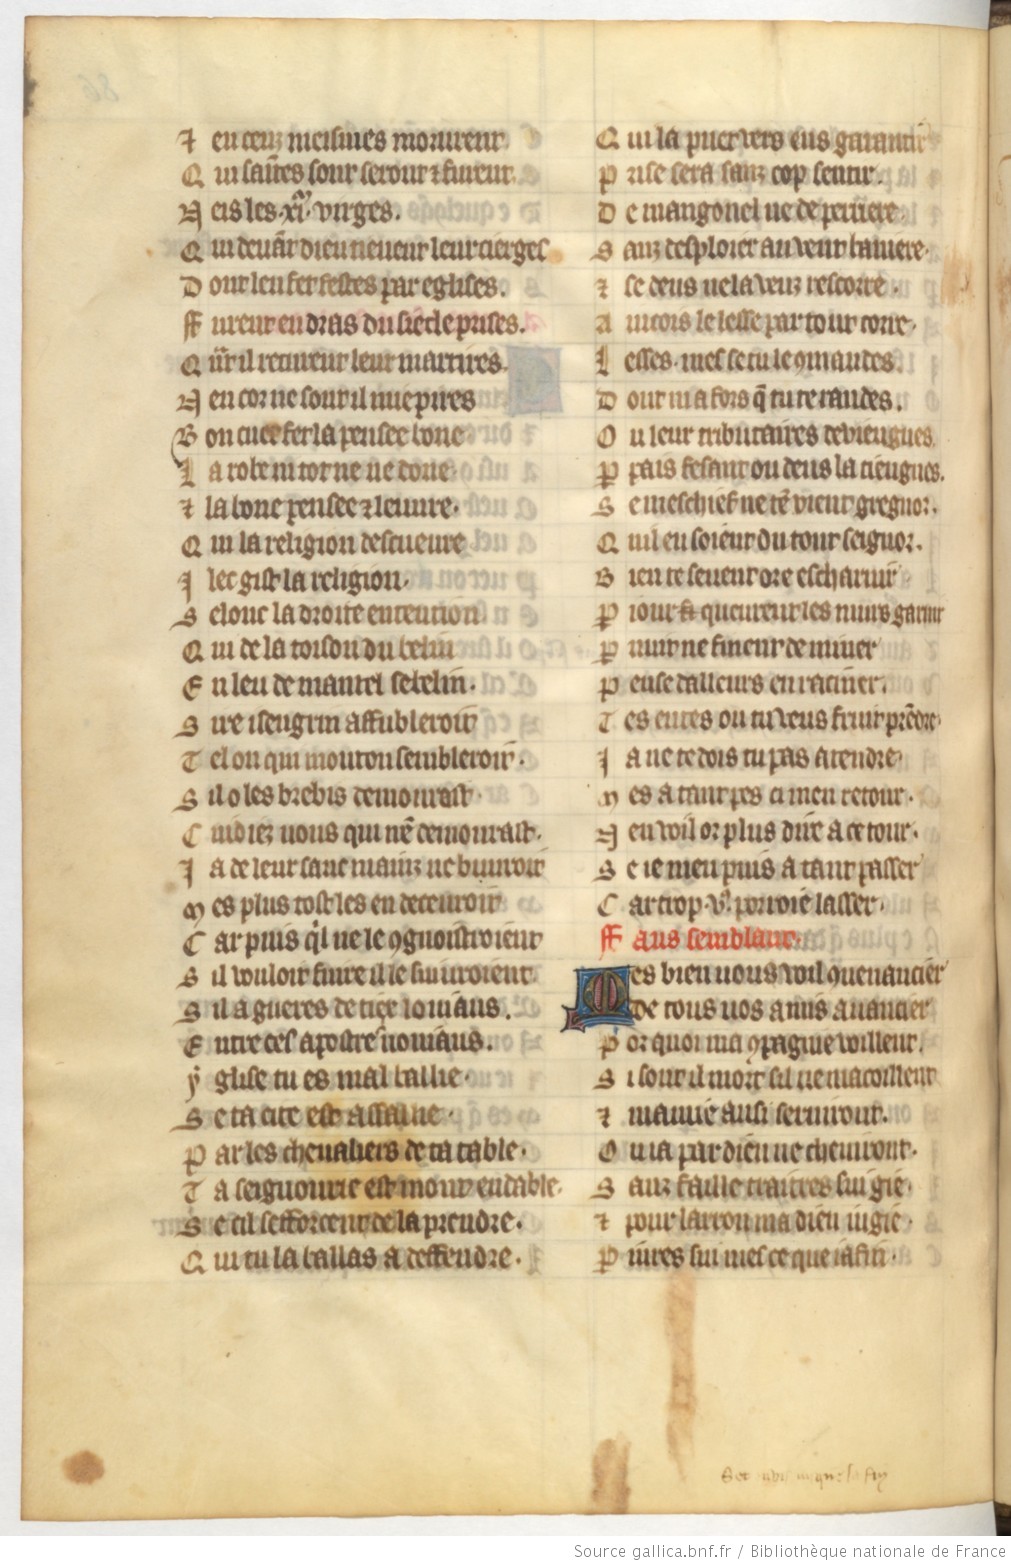 T en ceuz meismes morurent
Q ui saītes sont seront ⁊ furent
N eis les .xi.ᵐ virges.
Q ui deuāt dieu tienent leur cierges
D ont len fet festes par eglises.
FF urent en dras du siecle prises.
Q ūt il recurent leur martires
N encor ne sont il mie pires
B on cuer fet la pensee bone
L a robe ni tot ne ne done
⁊ la bone pensee ⁊ leuure.
Q ui la religion descueure
I lec gist la religion.
S elonc la droite entention
Q ui de la toison du belin
E n leu de mantel sebelin.
S ire isengrin affubleroit
T el ou qui mouton sembleroit.
S il o les brebis demorast
C uidiez uous qui nes deuourast.
J a de leur sanc mainz ne buuroit
M es plus tost les en deceuroit
C ar puis q̄l ne le ꝯgnoistroient
S il uouloit fuire il le suiuroient.
S il a gueres de tiex louuiaus.
E ntre ces apostres nouuiaus.
Y glise tu es mal baillie.
S e ta cite est assaillie.
P ar les cheualiers de ta table.
T a seignourie est mout endable.
S e cil sefforcent de la prendre.
Q ui tu la baillas a deffendre.
Q ui la puet vers eus garantir
P rise sera sanz cop sentir.
D e mangonel ne de perriere.
S anz desploier au uent baniere.
⁊ se deus ne la veuz rescorre.
A incois le lesse par tout corre.
L esses. mes se tu le ꝯmandes.
D ont ni a fors q̄ tu te randes.
O u leur tributaires deuiengnes
P pais fesant ou deus la tiengnes.
S e meschief ne tē vient gregnor.
Q uil en soient du tout seignor.
B ien te seuent ore escharnir
P iour & queurent les murs garnir
P nuit ne finent de miner
P ense dailleurs enraciner.
T es entes ou tu veus fruit prēdre.
J a ne te dois tu pas atendre.
M es a tant pes ci men retour.
N en voil or plus dire a ce tour.
S e ie men puis a tant passer
C ar trop v⁹ porroie lasser.
FF aus semblant.
Mes bien uous voil ꝯuenancier
de tous uos amis auancier
P or quoi ma ꝯpagnie voillent.
S i sont il mort sil ne macoillent
⁊ mamie ausi seruiront.
O u ia par dieu ne cheuiront.
S anz faille traitres sui gie.
⁊ pour larron ma dieu iugie.
P iures sui mes ce que iafin.
Source gallica.bnf.fr / Bibliothèque nationale de France